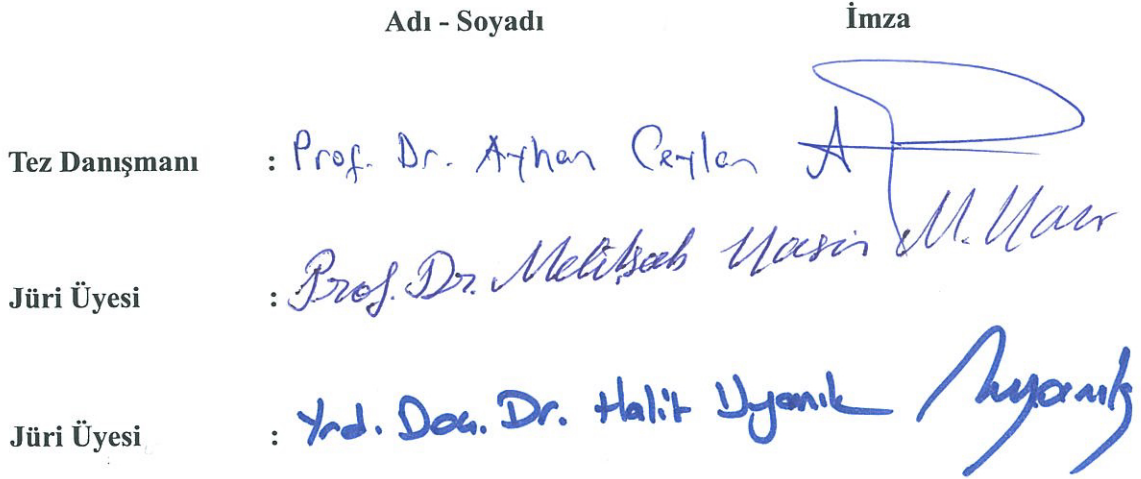 Adı - Soyadı İmza
Tez Danışmanı : Prof. Dr. Ayhan Ceylan
Jüri Üyesi : Prof. Dr. Melikşah Yasin M. Yasin
Jüri Üyesi : Yrd. Doç. Dr. Halit Uyanık Huyanık